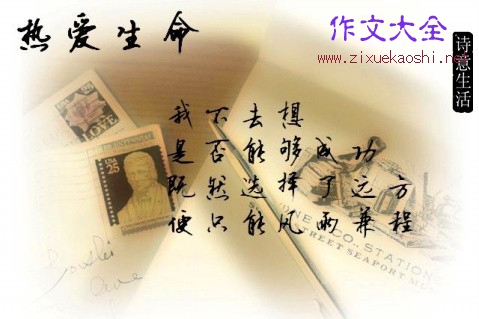 热爱生命
作文大全
www.zixuekaoshi.net
诗意生活
我不去想
是否能够成功
既然选择了远方
便只能风雨兼程
USA
29
LOVE
USA
25
CO. STATION
STREET SEAPORT